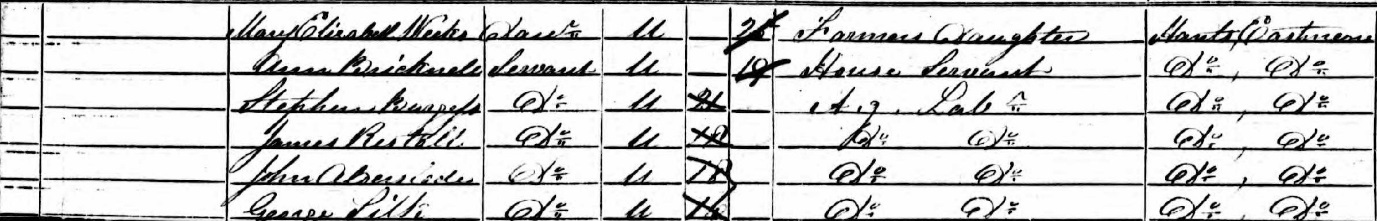 Mary Elizabeth Weeks Daur U 25 Farmers Daughter Hants, Eastmeon
Ann Bricknell Servant U 19 House Servant Do, Do
Stephen Burgess Do U 21 Ag. Labr Do, Do
James Restall Do U 18 Do Do Do, Do
John Do U 18 Do Do Do, Do
George Silk Do U 16 Do Do Do, Do